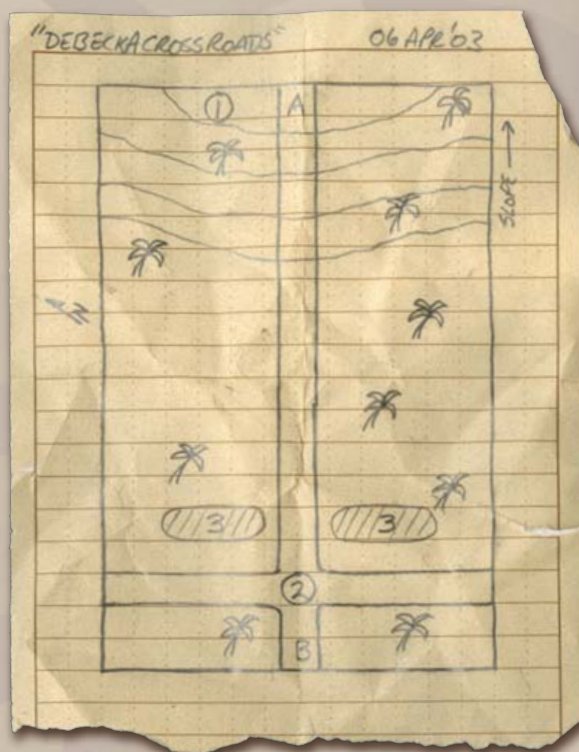 "DEBECKA CROSSROADS" 06 APR '03
1 A
SLOPE
N
3 3
2
B